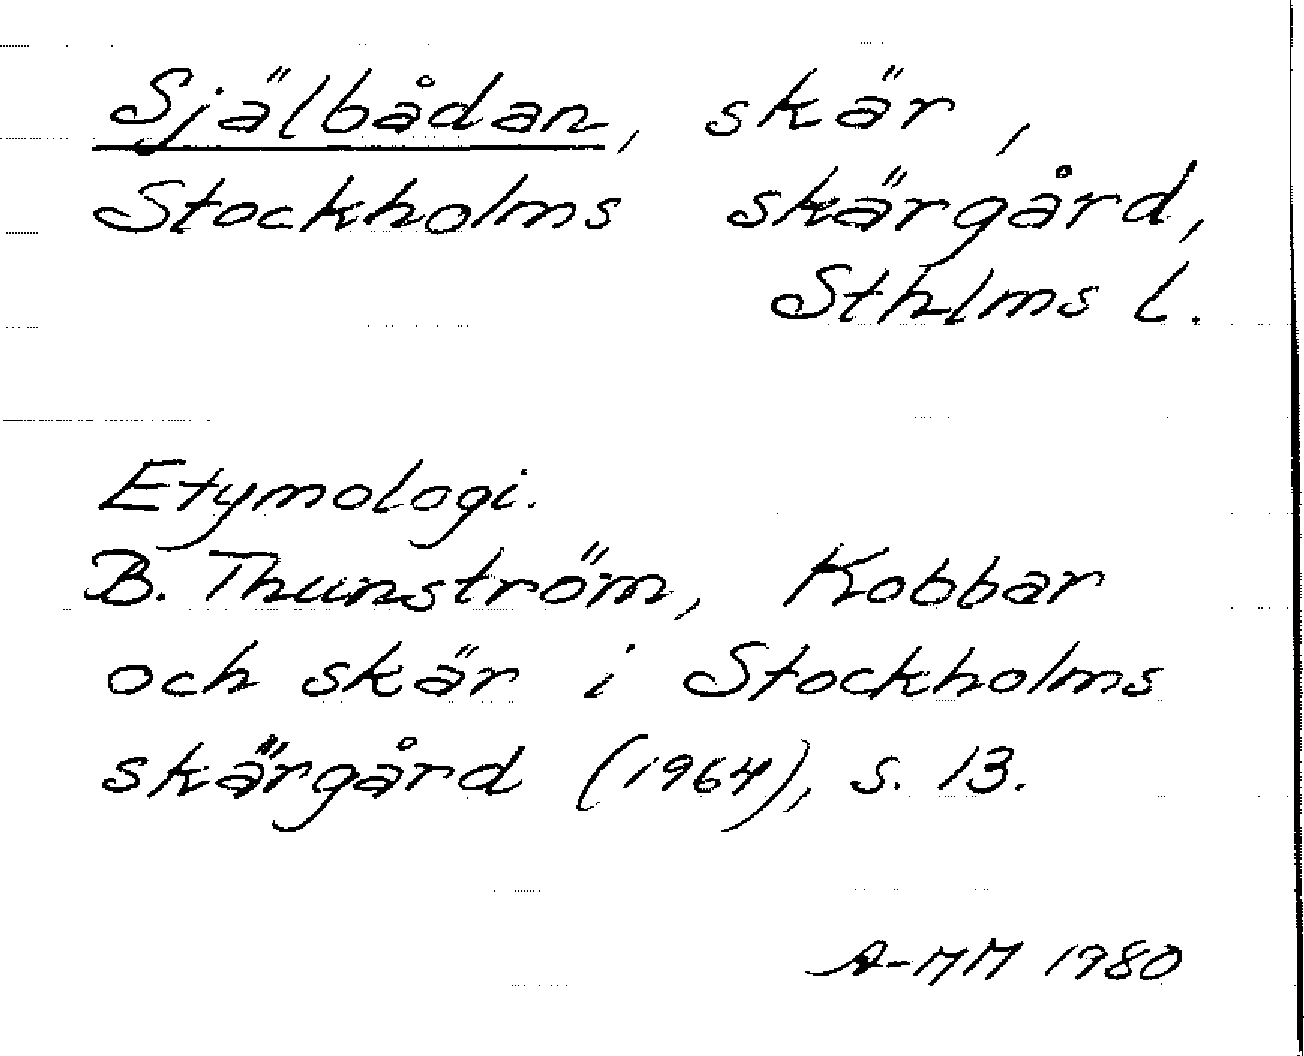 Själbådan, skär,
Stockholms skärgård,
Sthlms l.
Etymologi.
B. Thunström, Kobbar
och skär i Stockholms
skärgård (1964), s. 13.
A-MM 1980